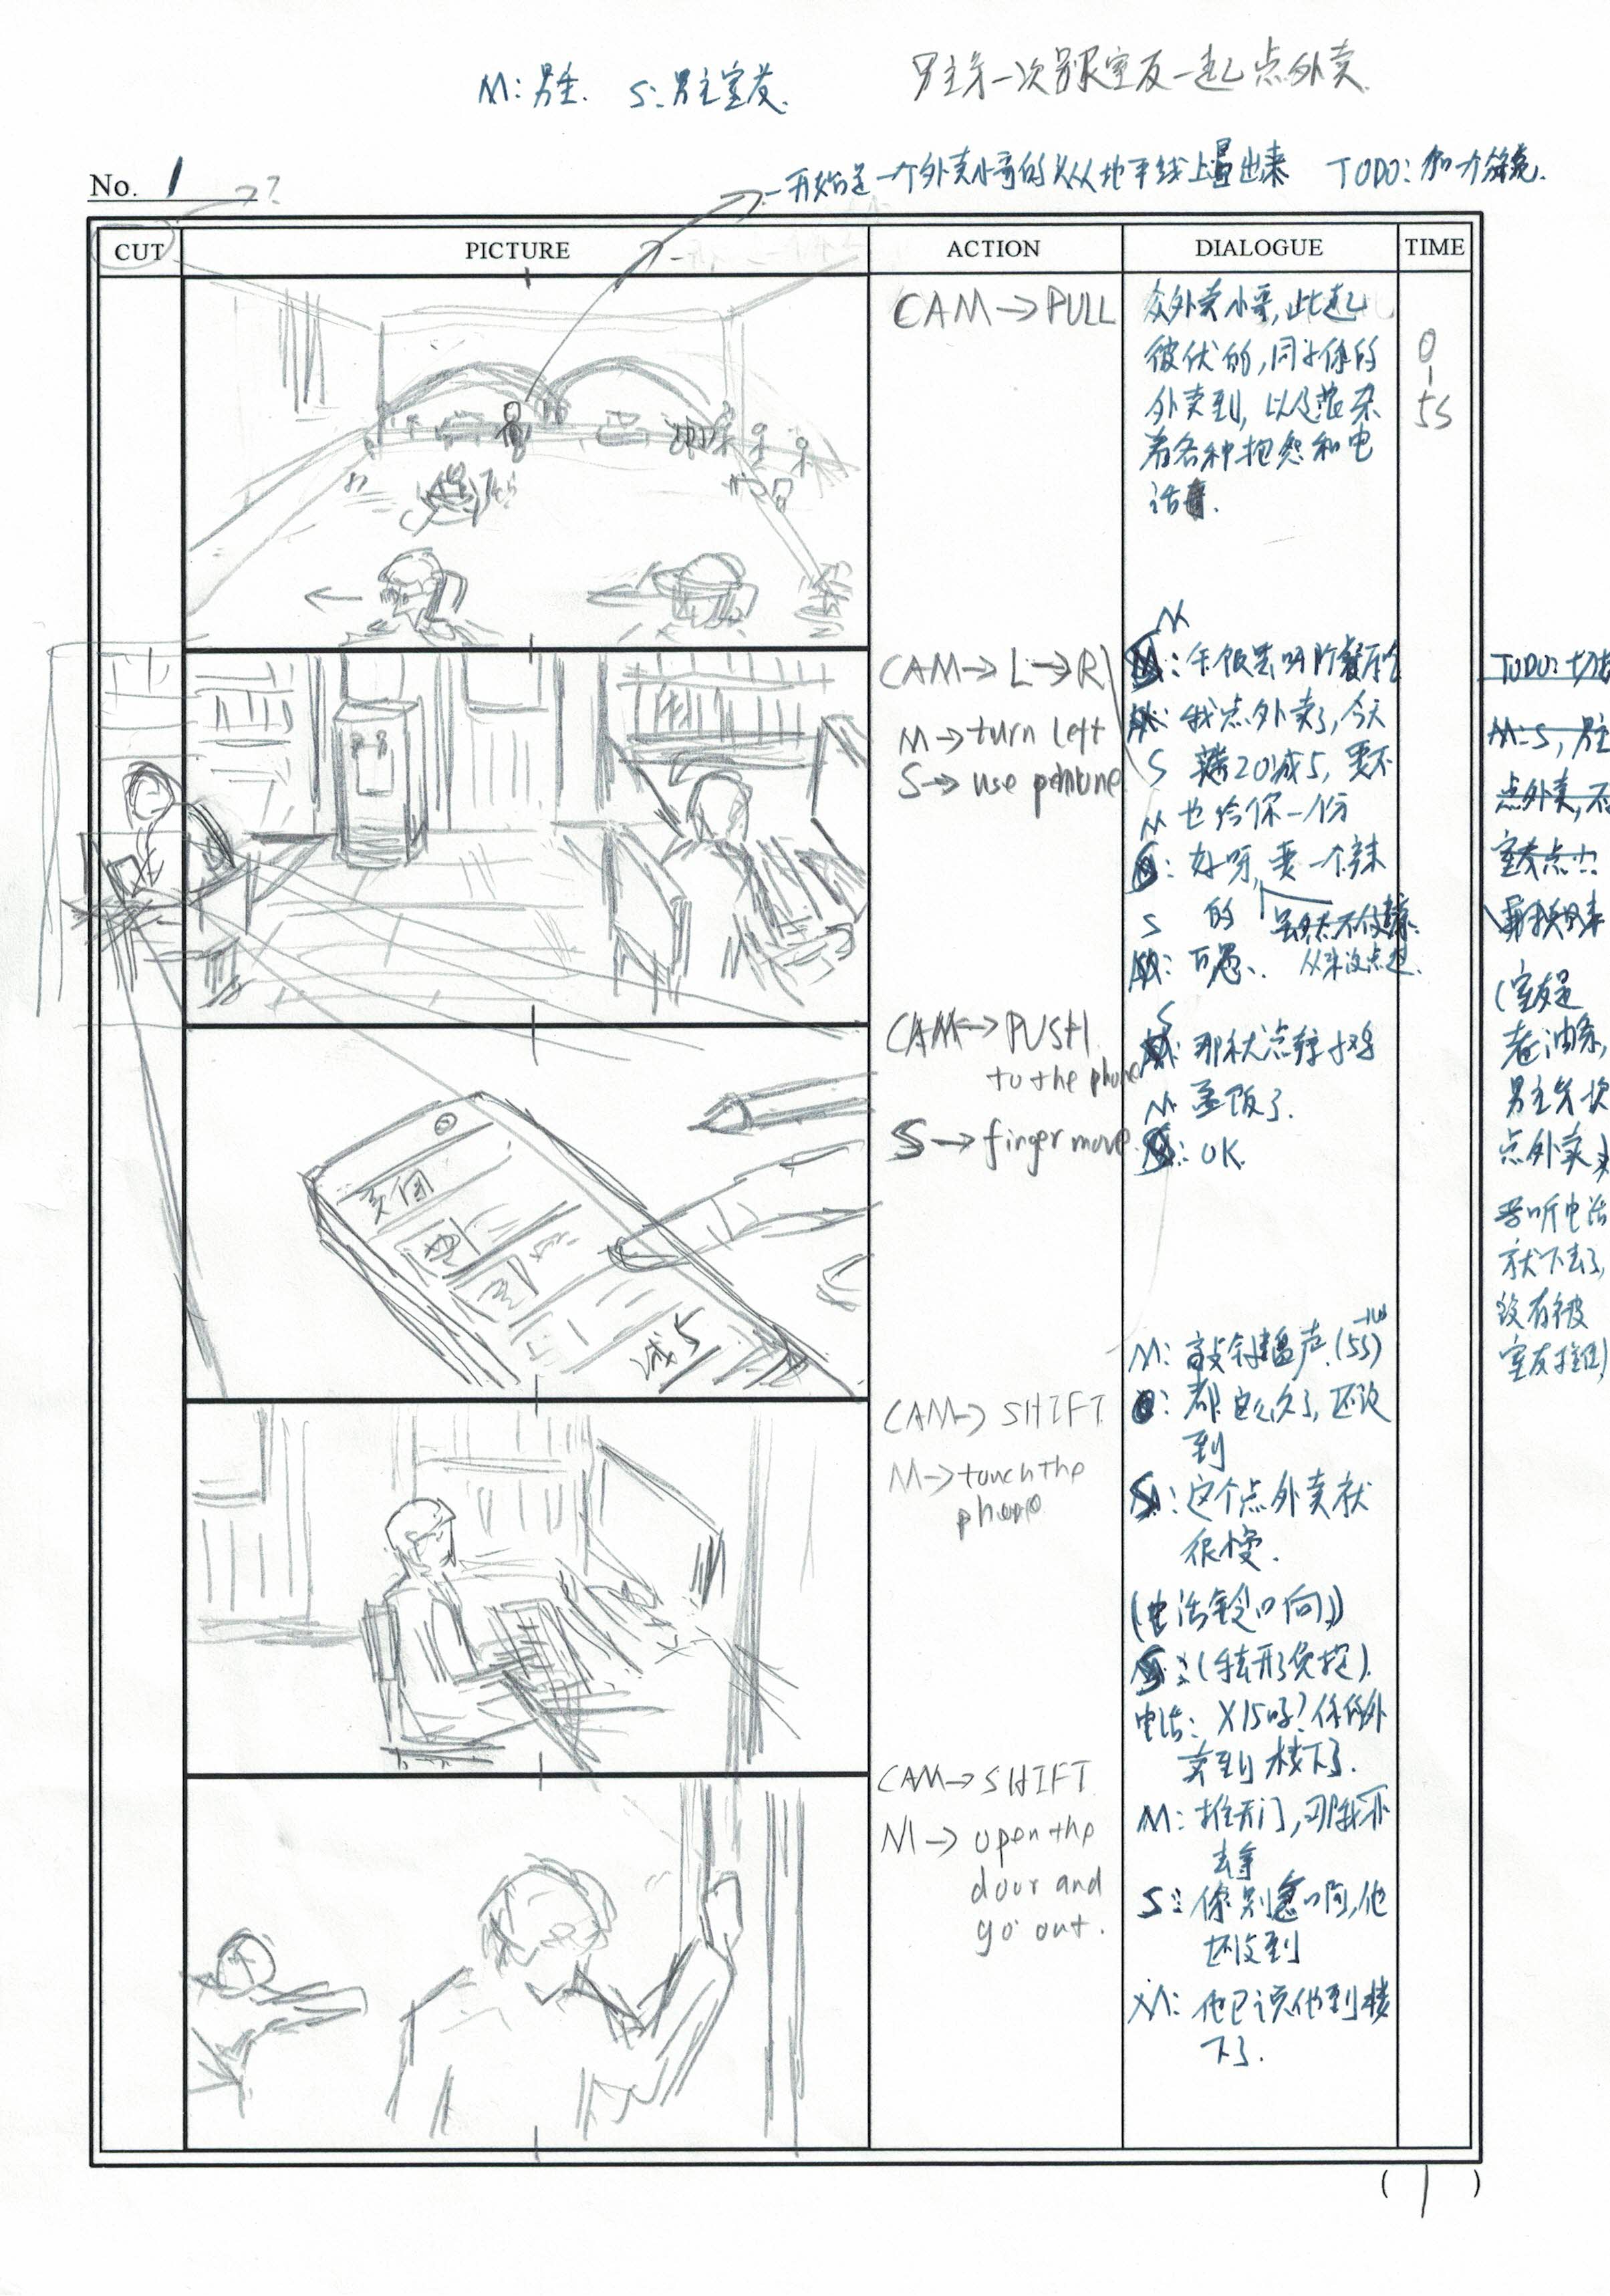 M: 男主. S: 男主室友.
男主第一次跟室友一起点外卖.
No. 1
?
一开始是一个外卖小哥的头从地平线上冒出来 TODO: 加个
CUT PICTURE ACTION DIALOGUE TIME
CAM → PULL
众外卖小哥, 此起
彼伏的, 同学你的
外卖到, 以及混杂
着各种抱怨和电
话
0
-
5s
CAM → L → R
M → turn left
S → use
M
: 午饭去哪
: 我点外卖了, 今天
S 满20减5, 要不
M 也给你一份
: 好呀, 要一个辣
S 的
从来没点过.
CAM → PUSH
to the phone
S → finger move.
美团
减5
S
: 那就点辣子鸡
M 盖饭了.
: OK.
CAM → SHIFT
M → touch the
phone
M: 敲键盘声. (5s)
: 都这么久了, 还没
到
S: 这个点外卖就
很慢.
(电话铃响)
电话: X15吗? 你的外
卖到楼下了.
CAM → SHIFT
M → open the
door and
go out.
M: 推开门,
去拿
S: 你别急啊, 他
还没到
M: 他已说他到楼
下了.
TODO:
M=S, 男主
点外卖, 不
(室友是
老油条,
男主先次
点外卖,
听电话
就下去了,
没有被
室友
( 1 )